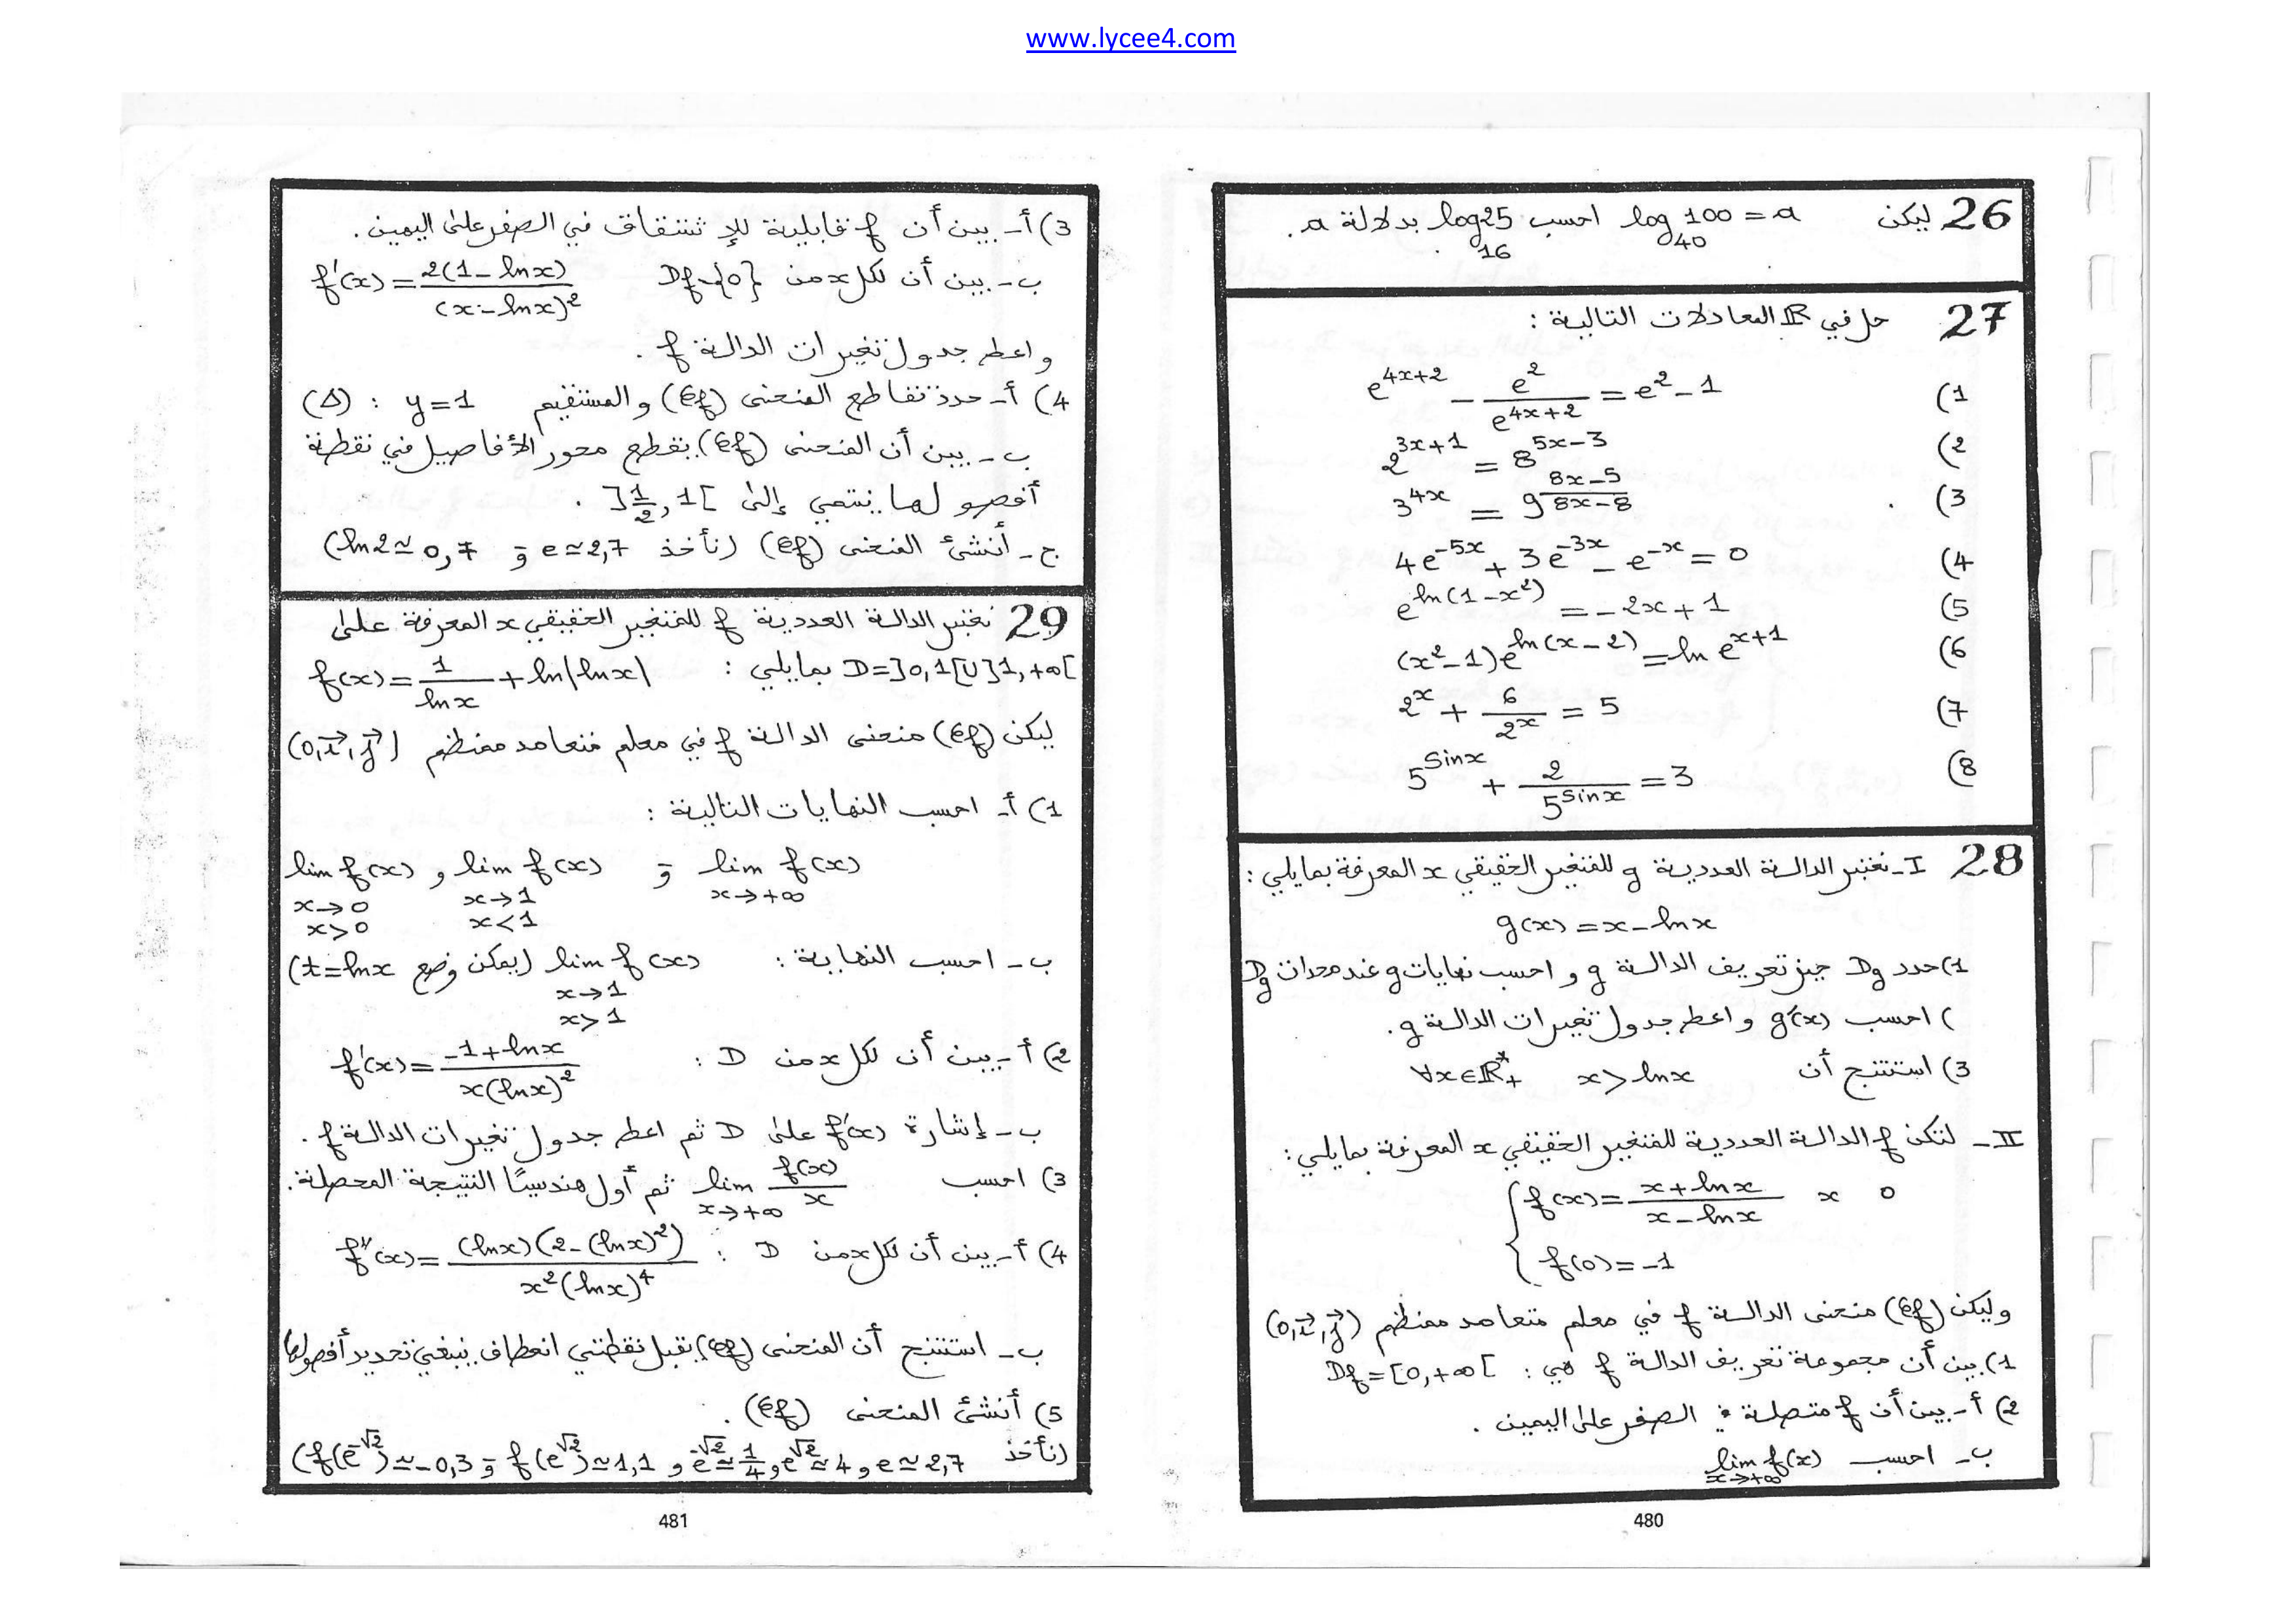 www.lycee4.com
26 ليكن log₄₀ 100 = a احسب log₁₆ 25 بدلالة a.
27 حل في ℝ المعادلات التالية :
1) e^{4x+2} - e^2/e^{4x+2} = e^2 - 1
2) 2^{3x+1} = 8^{5x-3}
3) 3^{4x} = 9^{(8x-5)/(8x-8)}
4) 4e^{-5x} + 3e^{-3x} - e^{-x} = 0
5) e^{ln(1-x^2)} = -2x+1
6) (x^2-1)e^{ln(x-2)} = ln e^{x+1}
7) 2^x + 6/2^x = 5
8) 5^{sin x} + 2/5^{sin x} = 3
28 I- نعتبر الدالة العددية g للمتغير الحقيقي x المعرفة بمايلي :
g(x) = x - ln x
1) حدد Dg حيز تعريف الدالة g و احسب نهايات g عند محدات Dg
) احسب g'(x) و اعط جدول تغيرات الدالة g.
3) استنتج أن x > ln x ∀x∈ℝ*₊
II- لتكن f الدالة العددية للمتغير الحقيقي x المعرفة بمايلي :
{ f(x) = (x+ln x)/(x-ln x) x 0
f(0) = -1
وليكن (Cf) منحنى الدالة f في معلم متعامد ممنظم (o,i⃗,j⃗)
1) بين أن مجموعة تعريف الدالة f هي : Df = [0,+∞[
2) أ- بين أن f متصلة في الصفر على اليمين .
ب- احسب lim f(x) x→+∞
480
3) أ- بين أن f قابلية للإ شتقاق في الصفر على اليمين .
ب- بين أن لكل x من Df-{0} f'(x) = 2(1-ln x)/(x-ln x)^2
و اعط جدول تغيرات الدالة f .
4) أ- حدد تقاطع المنحنى (Cf) و المستقيم (Δ) : y=1
ب- بين أن المنحنى (Cf) يقطع محور الأفاصيل في نقطة
أفصو لها ينتمي إلى ]1/2 , 1[ .
ج- أنشئ المنحنى (Cf) (نأخذ e≃2,7 و ln2≃0,7)
29 نعتبر الدالة العددية f للمتغير الحقيقي x المعرفة على
D=]0,1[U]1,+∞[ بمايلي : f(x) = 1/ln x + ln|ln x|
ليكن (Cf) منحنى الدالة f في معلم متعامد ممنظم (o,i⃗,j⃗)
1) أ- احسب النهايات التالية :
lim f(x) x→+∞ و lim f(x) x→1 x<1 , lim f(x) x→0 x>0
ب- احسب النهاية : lim f(x) x→1 x>1 (يمكن وضع t=ln x)
2) أ- بين أن لكل x من D : f'(x) = (-1+ln x)/(x(ln x)^2)
ب- إشارة f'(x) على D ثم اعط جدول تغيرات الدالة f .
3) احسب lim f(x)/x x→+∞ ثم أول هندسيًا النتيجة المحصلة.
4) أ- بين أن لكل x من D : f''(x) = (ln x)(2-(ln x)^2)/(x^2(ln x)^4)
ب- استنتج أن المنحنى (Cf) يقبل نقطتي انعطاف ينبغي تحديد أفصولها
5) أنشئ المنحنى (Cf) .
(نأخذ e≃2,7 و e^{√2}≃4 و e^{-√2}≃1/4 و f(e^{√2})≃1,1 و f(e^{-√2})≃-0,3)
481